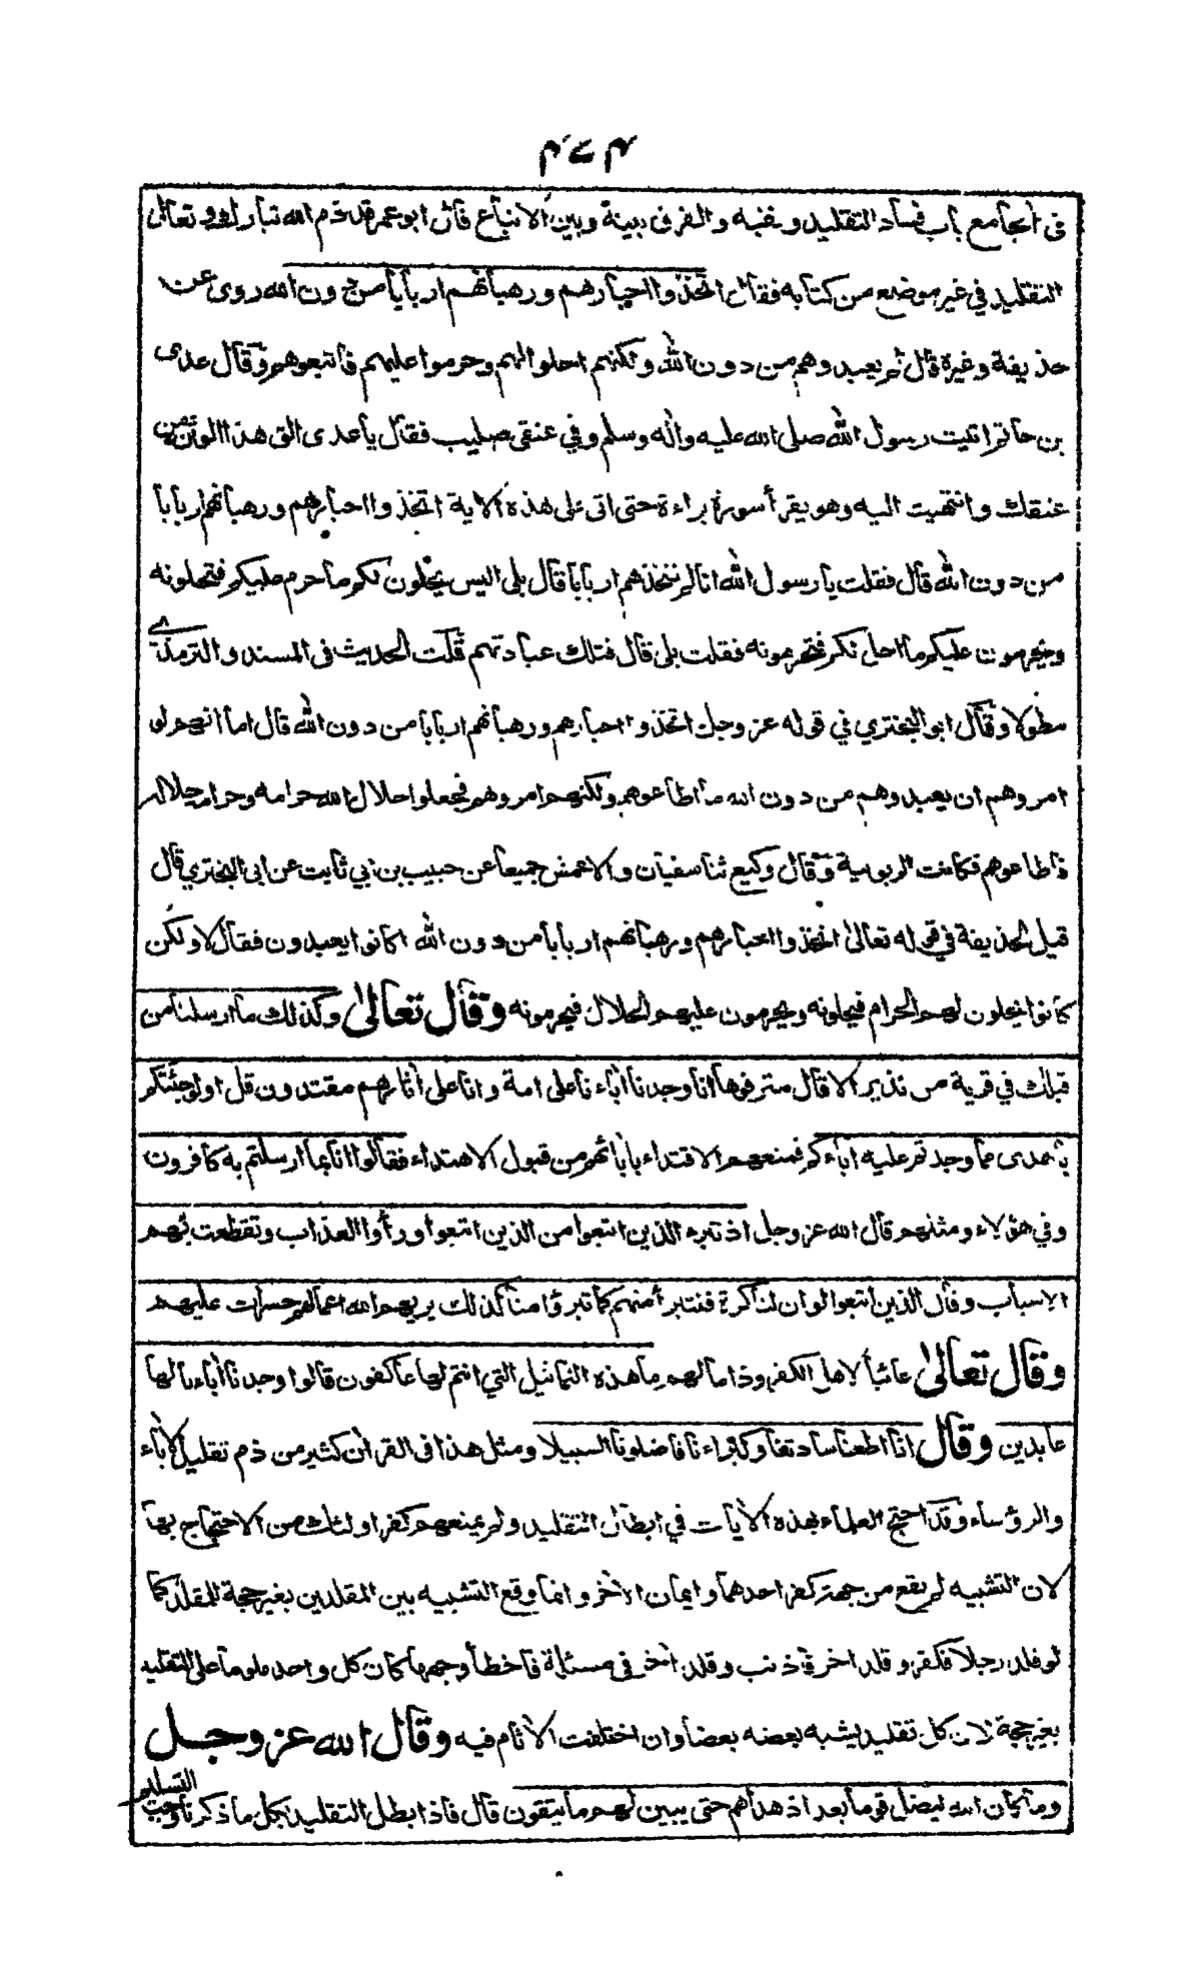 في الجامع باب فساد التقليد ونفيه والفرق بينه وبين الاتباع قال ابو عمر قد ذم الله تبارك وتعالى
التقليد في غير موضع من كتابه فقال اتخذوا احبارهم ورهبانهم اربابا من دون الله روى عن
حذيفة وغيره قال لم يعبدوهم من دون الله ولكنهم احلوا لهم وحرموا عليهم فاتبعوهم وقال عدى
بن حاتم اتيت رسول الله صلى الله عليه واله وسلم وفي عنقى صليب فقال يا عدى الق هذا الوثن من
عنقك وانتهيت اليه وهو يقرأ سورة براءة حتى اتى على هذه الاية اتخذوا احبارهم ورهبانهم اربابا
من دون الله قال فقلت يا رسول الله انا لم نتخذهم اربابا قال بلى اليس يحلون لكم ما حرم عليكم فتحلونه
ويحرمون عليكم ما احل لكم فتحرمونه فقلت بلى قال فتلك عبادتهم قلت الحديث في المسند والترمذي
مطولا وقال ابو البختري في قوله عز وجل اتخذوا احبارهم ورهبانهم اربابا من دون الله قال اما انهم لو
امروهم ان يعبدوهم من دون الله ما اطاعوهم ولكنهم امروهم فجعلوا حلال الله حرامه وحرامه حلاله
فاطاعوهم فكانت الربوبية وقال وكيع ثنا سفيان والاعمش جميعا عن حبيب بن ابي ثابت عن ابى البختري قال
قيل لحذيفة في قوله تعالى اتخذوا احبارهم ورهبانهم اربابا من دون الله اكانوا يعبدون فقال لا ولكن
كانوا يحلون لهم الحرام فيحلونه ويحرمون عليهم الحلال فيحرمونه وقال تعالى وكذلك ما ارسلنا من
قبلك في قرية من نذير الا قال مترفوها انا وجدنا اباءنا على امة وانا على اثارهم مقتدون قل اولو جئتكم
باهدى مما وجدتم عليه اباءكم فمنعهم الاقتداء بابائهم من قبول الاهتداء فقالوا انا بما ارسلتم به كافرون
وفي هؤلاء ومثلهم قال الله عز وجل اذ تبرء الذين اتبعوا من الذين اتبعوا ورأوا العذاب وتقطعت بهم
الاسباب وقال الذين اتبعوا لو ان لنا كرة فنتبرأ منهم كما تبرؤا منا كذلك يريهم الله اعمالهم حسرات عليهم
وقال تعالى عائبا لاهل الكفر وذاما لهم ما هذه التماثيل التي انتم لها عاكفون قالوا وجدنا اباءنا لها
عابدين وقال انا اطعنا سادتنا وكبراءنا فاضلونا السبيلا ومثل هذا في القران كثير من ذم تقليد الاباء
والرؤساء وقد احتج العلماء بهذه الايات في ابطال التقليد ولم يمنعهم كفر اولئك من الاحتجاج بها
لان التشبيه لم يقع من جهة كفر احدهما وايمان الاخر وانما وقع التشبيه بين المقلدين بغير حجة للمقلد كما
لو قلد رجلا فكفر وقلد اخر فاذنب وقلد اخر في مسئلة فاخطأ وجهها كان كل واحد ملوما على التقليد
بغير حجة لان كل تقليد يشبه بعضه بعضا وان اختلفت الاثام فيه وقال الله عز وجل
وما كان الله ليضل قوما بعد اذ هداهم حتى يبين لهم ما يتقون قال فاذا بطل التقليد بكل ما ذكرنا وجب التسليم